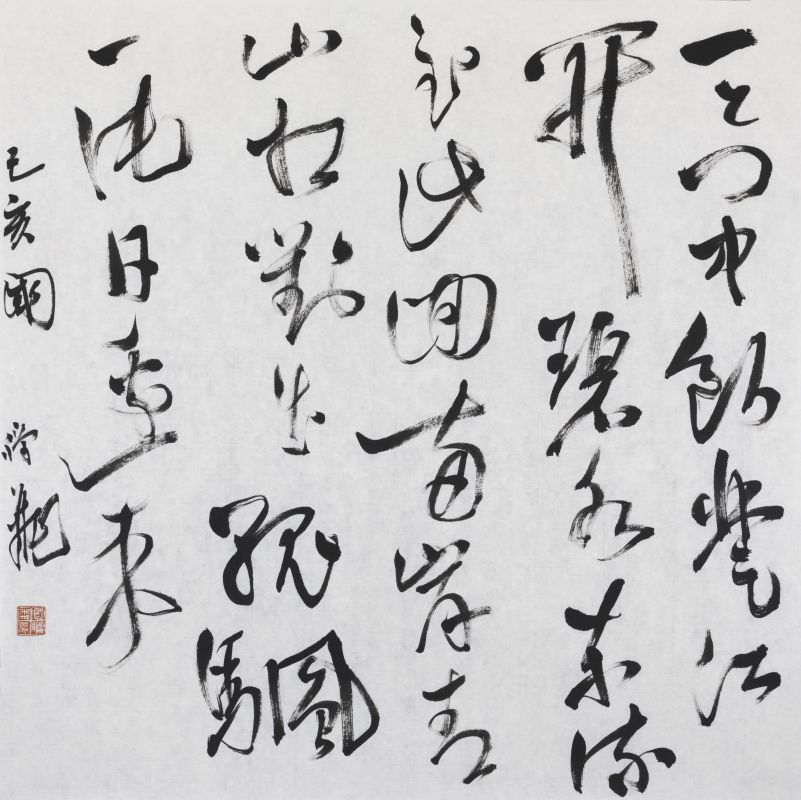 天门中断楚江
开碧水东流
至此回两岸青
山相對出孤颿
一片日边来
己亥